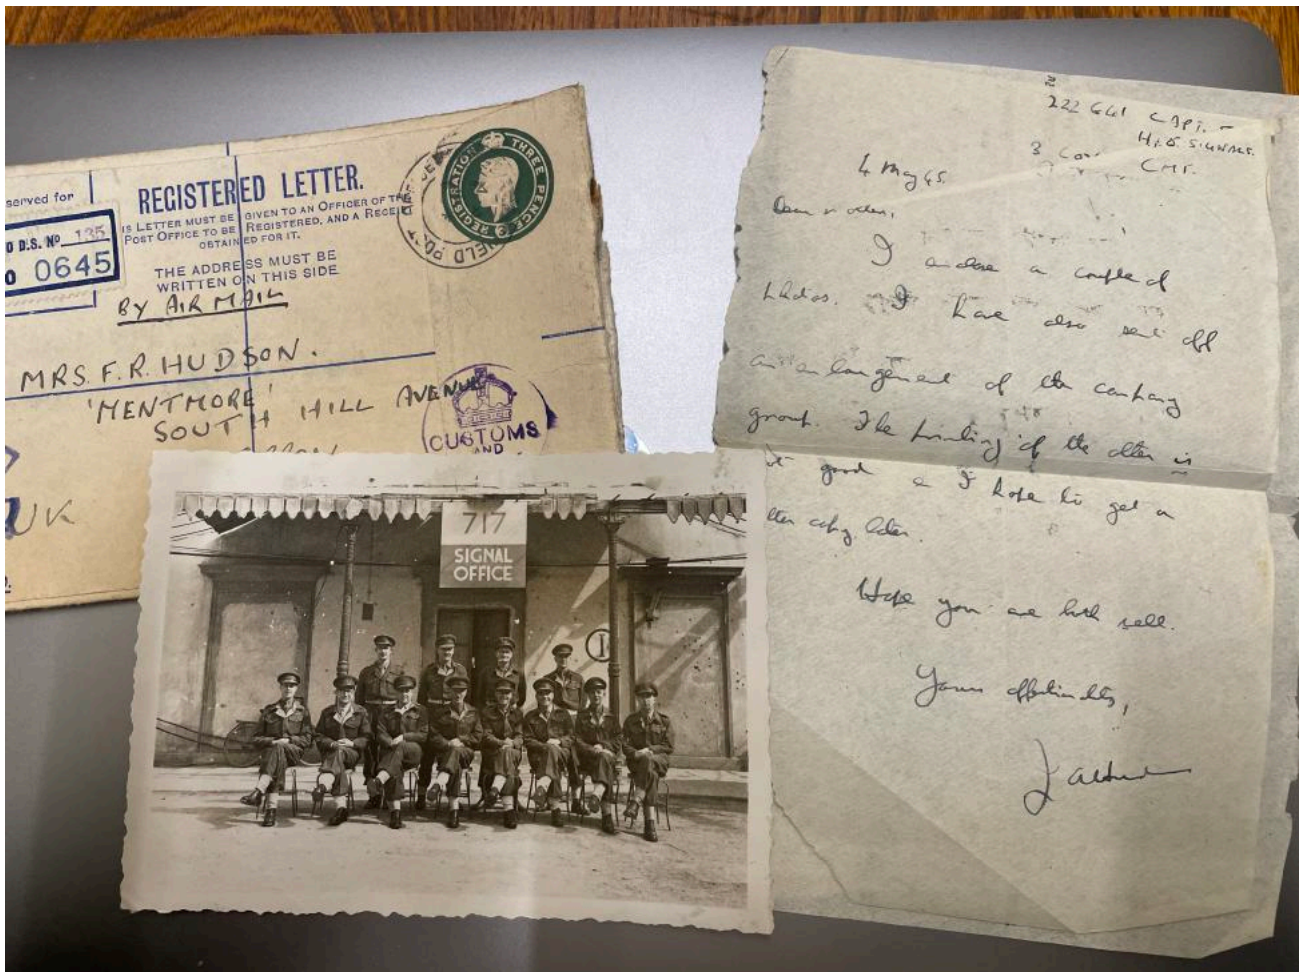 served for
D.S. Nº 135
0645
REGISTERED LETTER.
IS LETTER MUST BE GIVEN TO AN OFFICER OF THE
POST OFFICE TO BE REGISTERED, AND A RECEI
OBTAINED FOR IT.
THE ADDRESS MUST BE
WRITTEN ON THIS SIDE
BY AIR MAIL
MRS. F. R. HUDSON.
'MENTMORE'
SOUTH HILL AVENUE
UK
REGISTRATION THREE PENCE 3
FIELD POST
CUSTOMS
AND
717
SIGNAL
OFFICE
222 CAPT.
SIGNALS.
3 CMF.
4 May 45.
I enclose a couple of
photos. I have also sent off
an enlargement of the company
group. The printing of the other is
good I hope to get a
copy later.
Hope you are both well.
Yours affectionately,